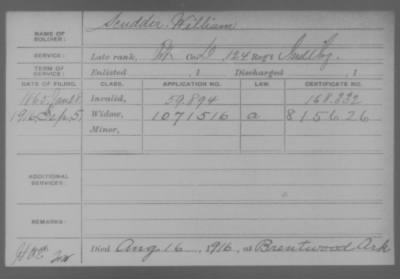 NAME OF SOLDIER:
Scudder, William
SERVICE:
Late rank, Pt Co. D 124 Reg't Ind Inf
TERM OF SERVICE:
Enlisted , 1 Discharged , 1
DATE OF FILING. CLASS. APPLICATION NO. LAW. CERTIFICATE NO.
1865 Invalid, 59.894 158.332
1916 Sep. 5. Widow, 1071516 a 815626
Minor,
ADDITIONAL SERVICES:
REMARKS:
Died Aug 16, 1916, at Brentwood Ark